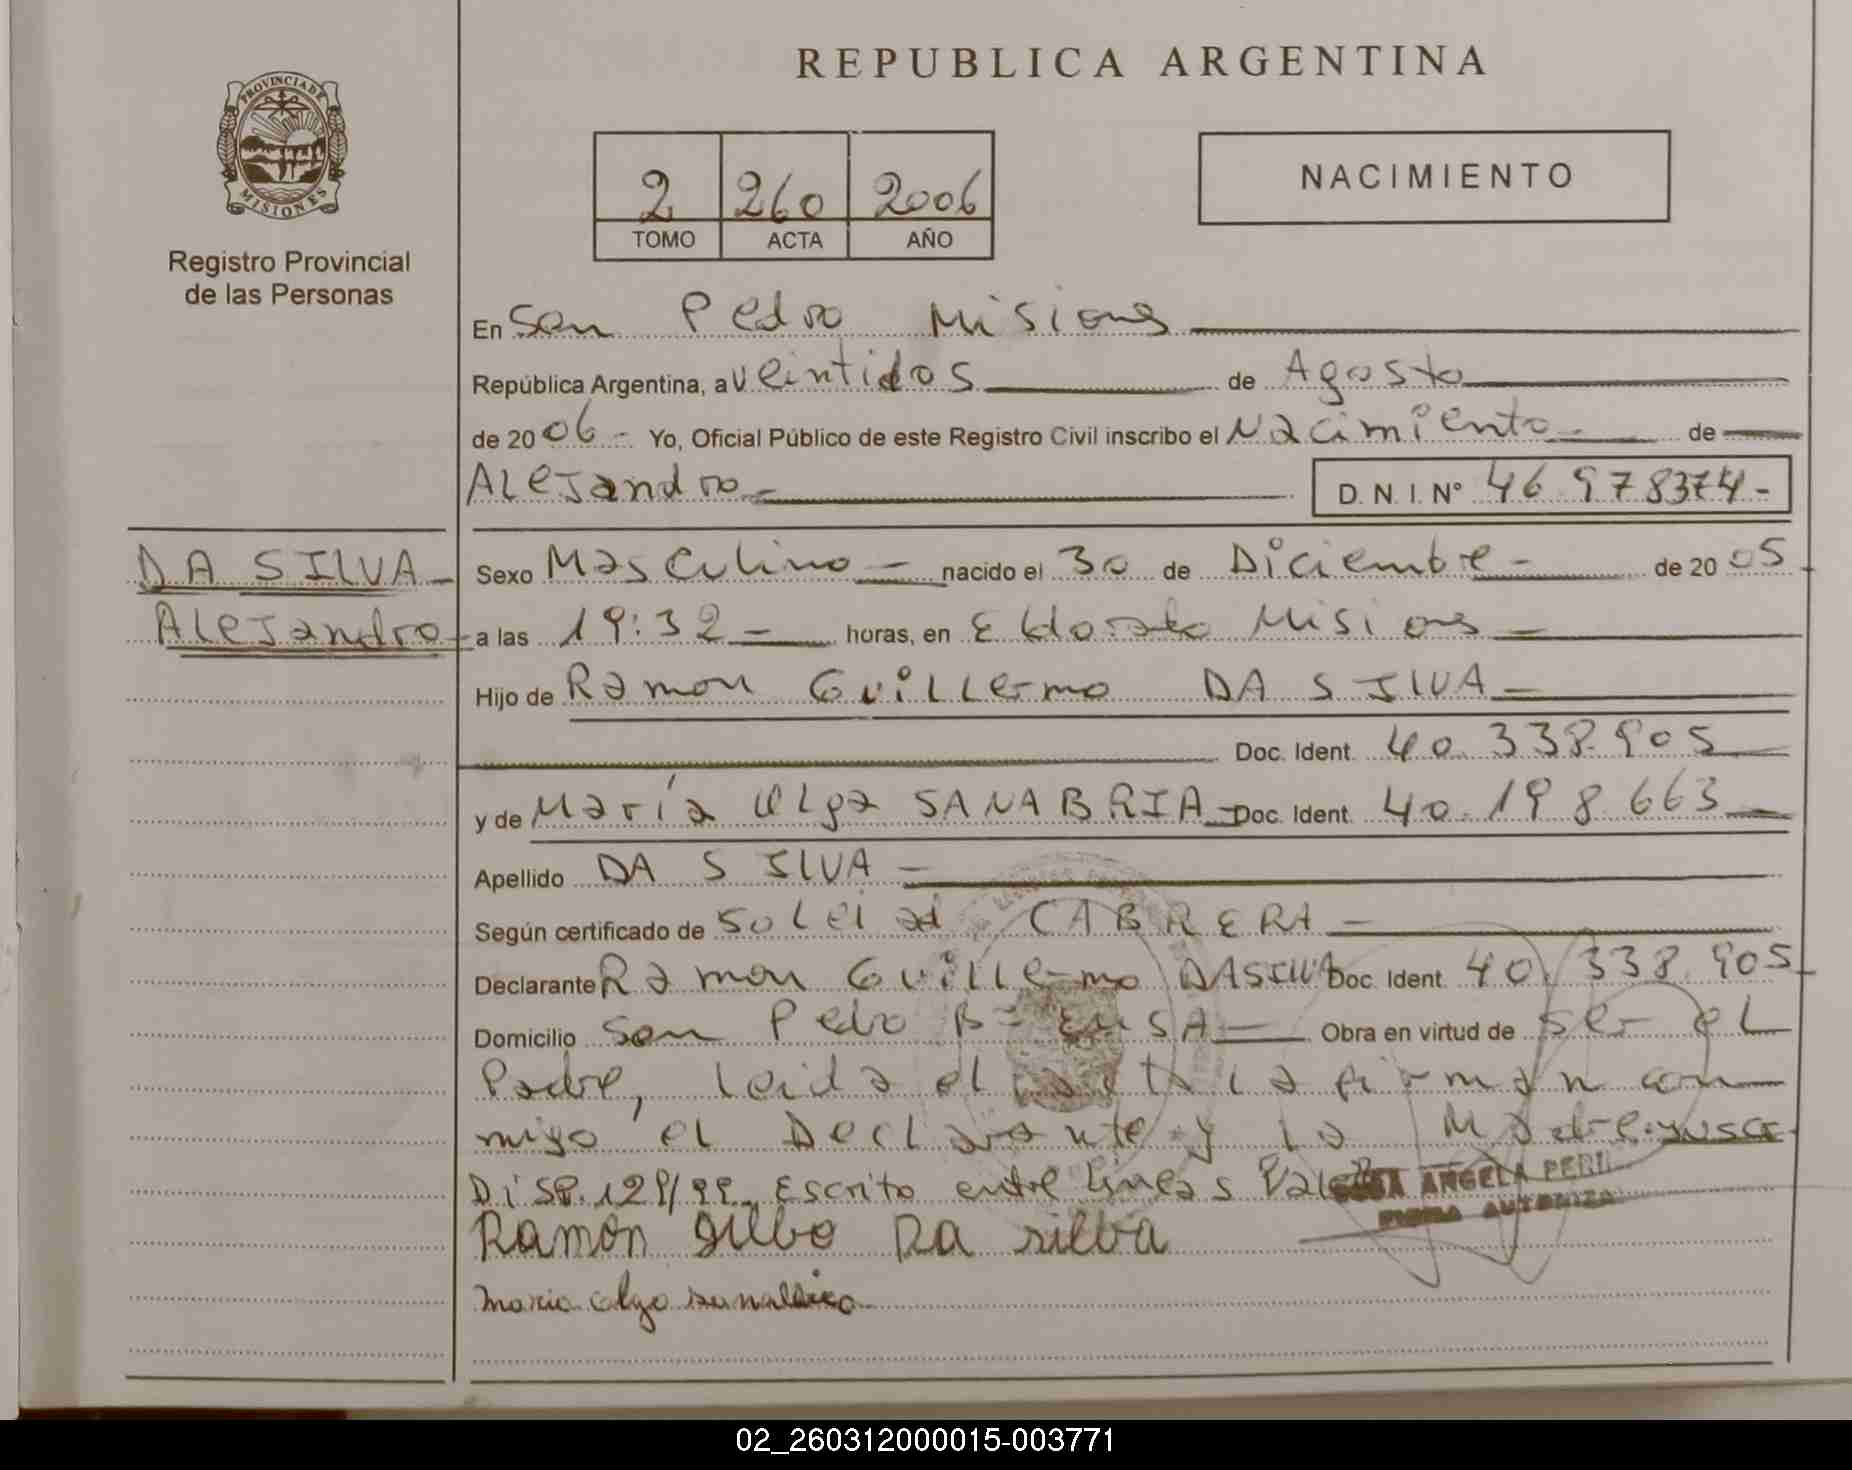 REPUBLICA ARGENTINA
PROVINCIA DE
MISIONES
Registro Provincial
de las Personas
2 260 2006
TOMO ACTA AÑO
NACIMIENTO
En San Pedro Misiones
República Argentina, a veintidos de Agosto
de 2006- Yo, Oficial Público de este Registro Civil inscribo el Nacimiento de
Alejandro D. N. I. Nº 46 978374-
DA SILVA
Alejandro
Sexo Masculino - nacido el 30 de Diciembre - de 2005
a las 19:32 horas, en Eldorado Misiones
Hijo de Ramon Guillermo DA SILVA
Doc. Ident. 40.338.905
y de María Olga SANABRIA Doc. Ident. 40.198.663
Apellido DA SILVA
Según certificado de Soleiad CABRERA
Declarante Ramon Guillermo DA SILVA Doc. Ident. 40.338.905
Domicilio San Pedro Bº Obra en virtud de ser el
Padre, leida el acta la firman con
migo el Declarante y la Madre.
Disp. 129/99. Escrito entre lineas Vale
ANGELA
AUTORIZA
Ramón Da silba
maria olga
02_260312000015-003771